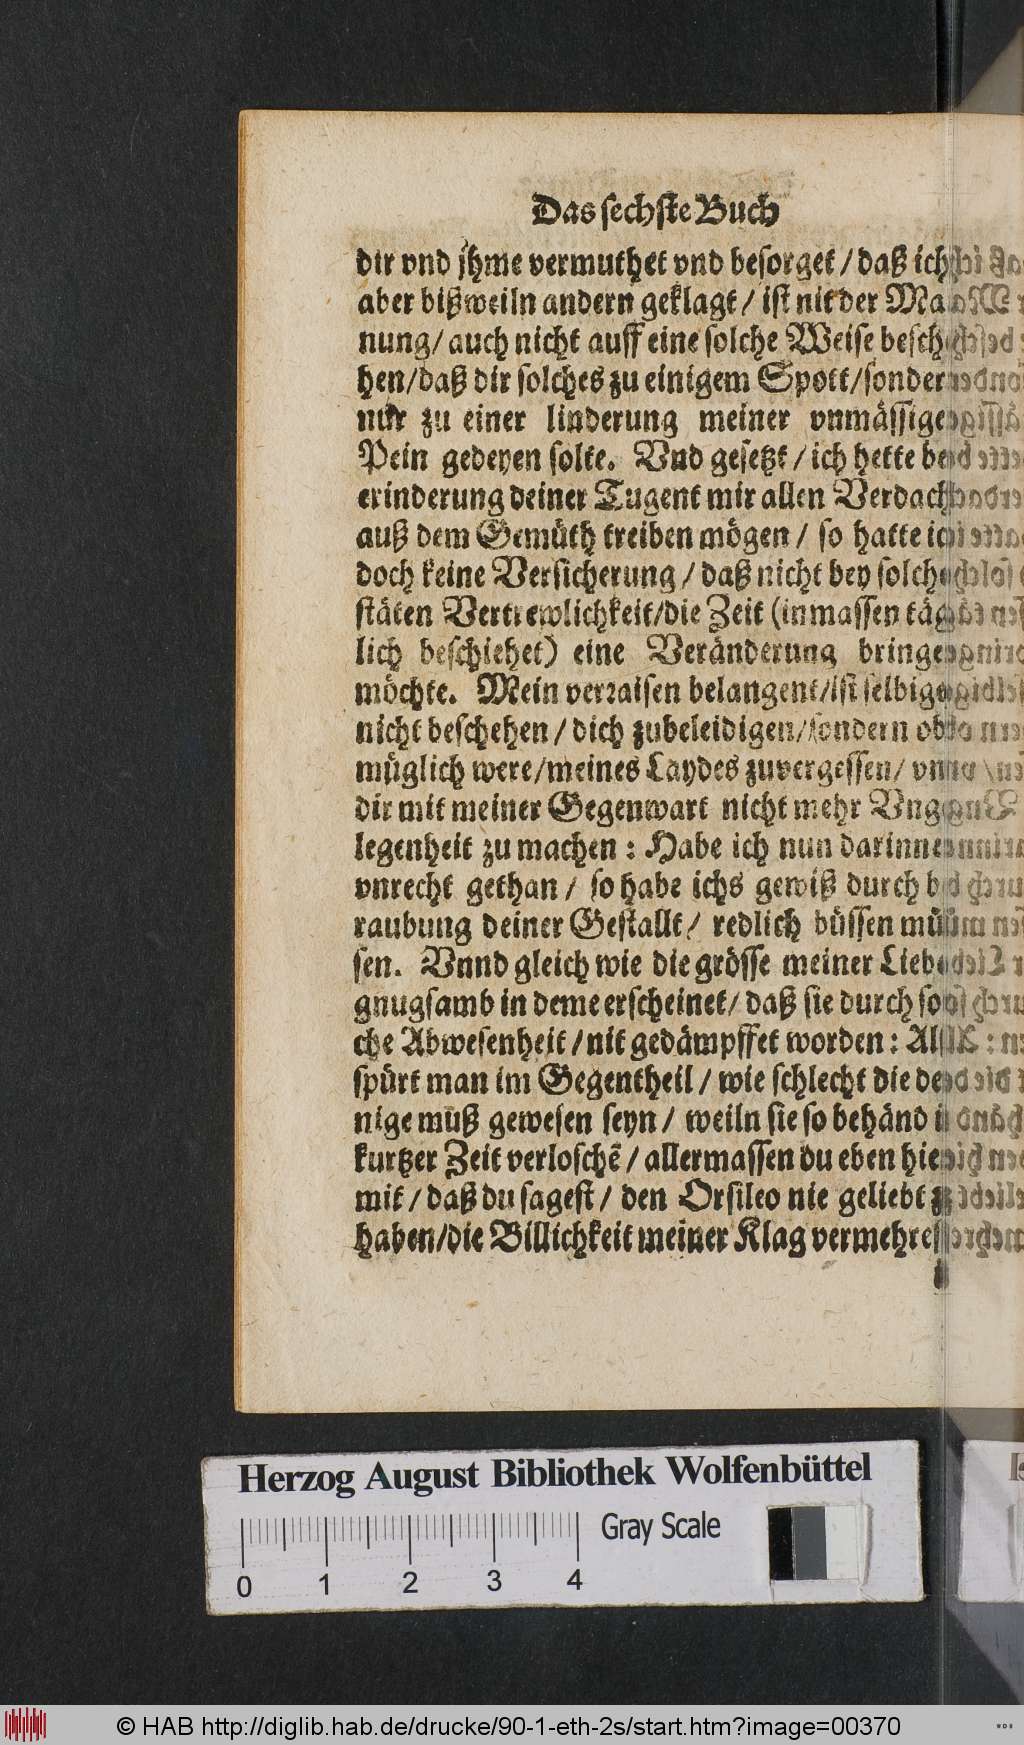 Das sechste Buch
dir vnd jhme vermuthet vnd besorget / daß ich
aber bißweiln andern geklagt / ist nit der
nung / auch nicht auff eine solche Weise
hen / daß dir solches zu einigem Spott /
nur zu einer linderung meiner
Pein gedeyen solte. Vnd gesetzt / ich hette
erinderung deiner Tugent mir allen
auß dem Gemüth treiben mögen / so hatte
doch keine Versicherung / daß nicht bey
stäten Vertrewlichkeit / die Zeit (inmassen
lich beschiehet) eine Veränderung
möchte. Mein verraisen belangent / ist
nicht beschehen / dich zubeleidigen / sondern
müglich were / meines Laydes zuvergessen /
dir mit meiner Gegenwart nicht mehr
legenheit zu machen : Habe ich nun
vnrecht gethan / so habe ichs gewiß durch
raubung deiner Gestallt / redlich büssen
sen. Vnnd gleich wie die grösse meiner
gnugsamb in deme erscheinet / daß sie durch
che Abwesenheit / nit gedämpffet worden :
spürt man im Gegentheil / wie schlecht die
nige muß gewesen seyn / weiln sie so behänd
kurtzer Zeit verloschẽ / allermassen du eben
mit / daß du sagest / den Orsileo nie geliebt
haben / die Billichkeit meiner Klag
Herzog August Bibliothek Wolfenbüttel
Gray Scale
0 1 2 3 4
© HAB http://diglib.hab.de/drucke/90-1-eth-2s/start.htm?image=00370